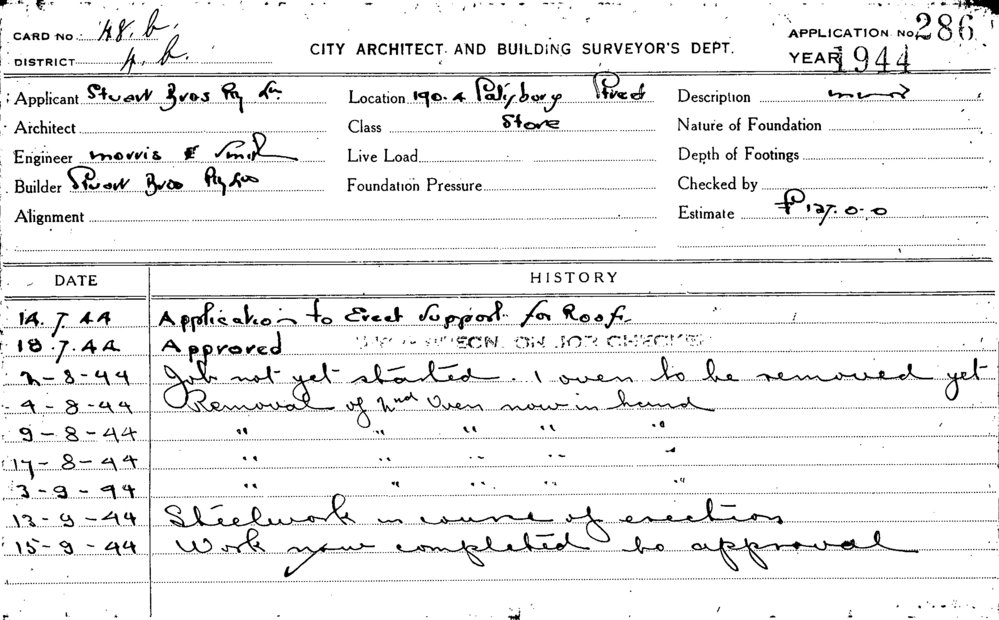 CARD NO. 48. b.
CITY ARCHITECT AND BUILDING SURVEYOR'S DEPT.
APPLICATION No. 286
DISTRICT
YEAR 1944
Applicant Stuart Bros Pty Ltd.
Location 190.4 Palisbury Street
Description
Architect
Class Store
Nature of Foundation
Engineer Morris & Smith
Live Load
Depth of Footings
Builder Stuart Bros Pty Ltd
Foundation Pressure
Checked by
Alignment
Estimate £127.0.0
DATE HISTORY
14.7.44 Application to Erect Support for Roof.
18.7.44 Approved ON JOB CHECKED
2-8-44 Job not yet started. 1 oven to be removed yet
4-8-44 Removal of 2nd Oven now in hand
9-8-44 " " " " "
17-8-44 " " " " "
3-9-44 " " " " "
13-9-44 Steelwork in course of erection
15-9-44 Work now completed to approval